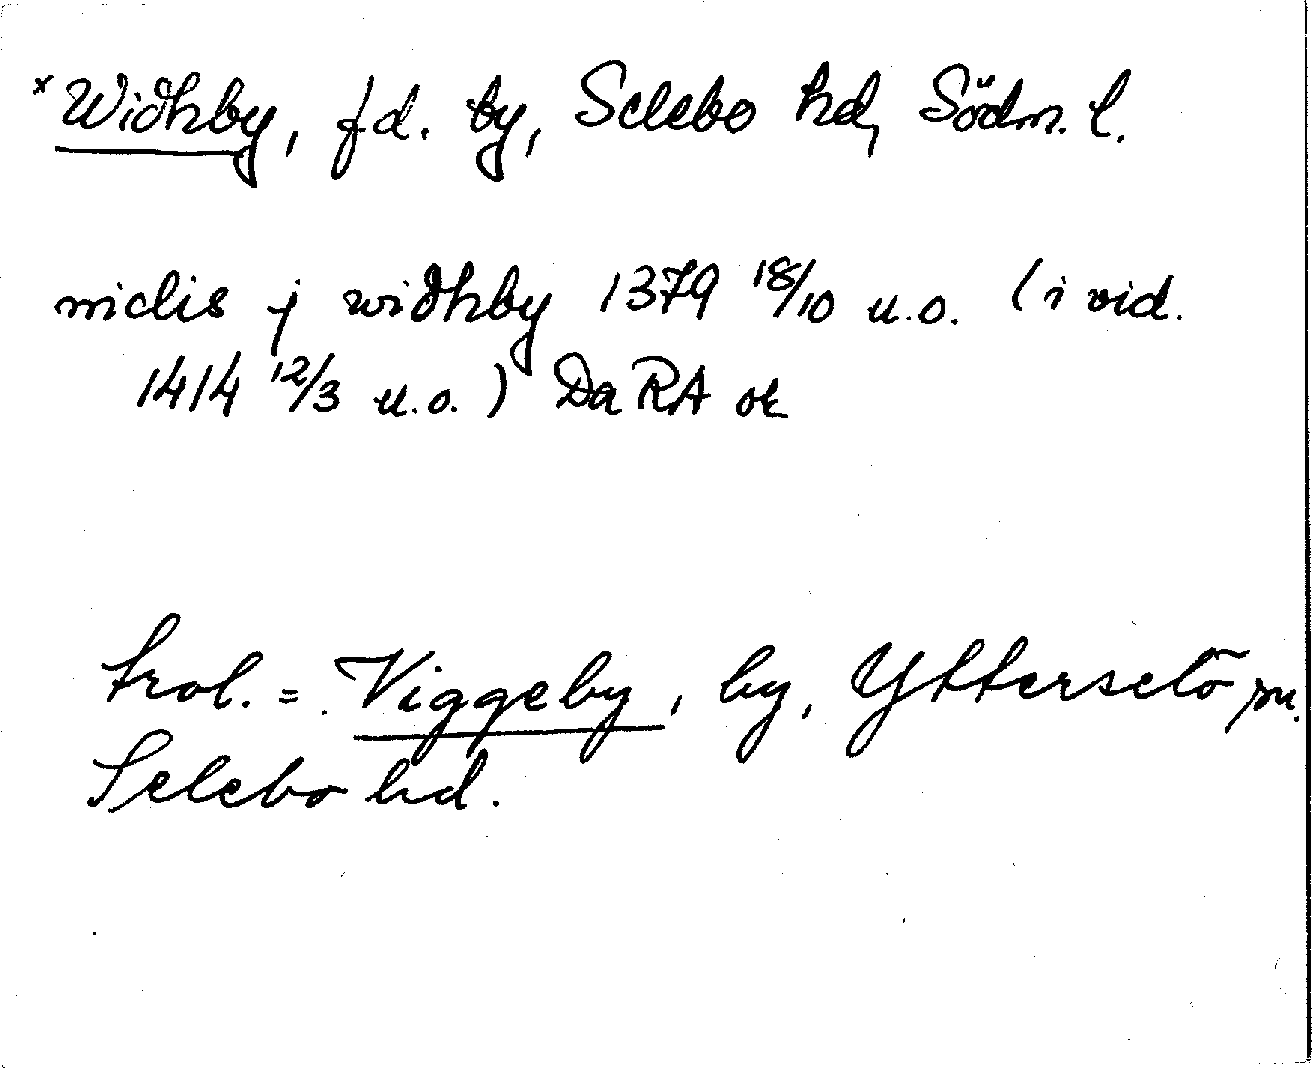 ×Widhby, f.d. by, Selebo hd, Södm. l.
niclis j widhby 1379 18/10 u.o. (i vid.
1414 12/3 u.o.) Da RA or
trol. = Viggeby, by, Ytterselö sn.
Selebo hd.